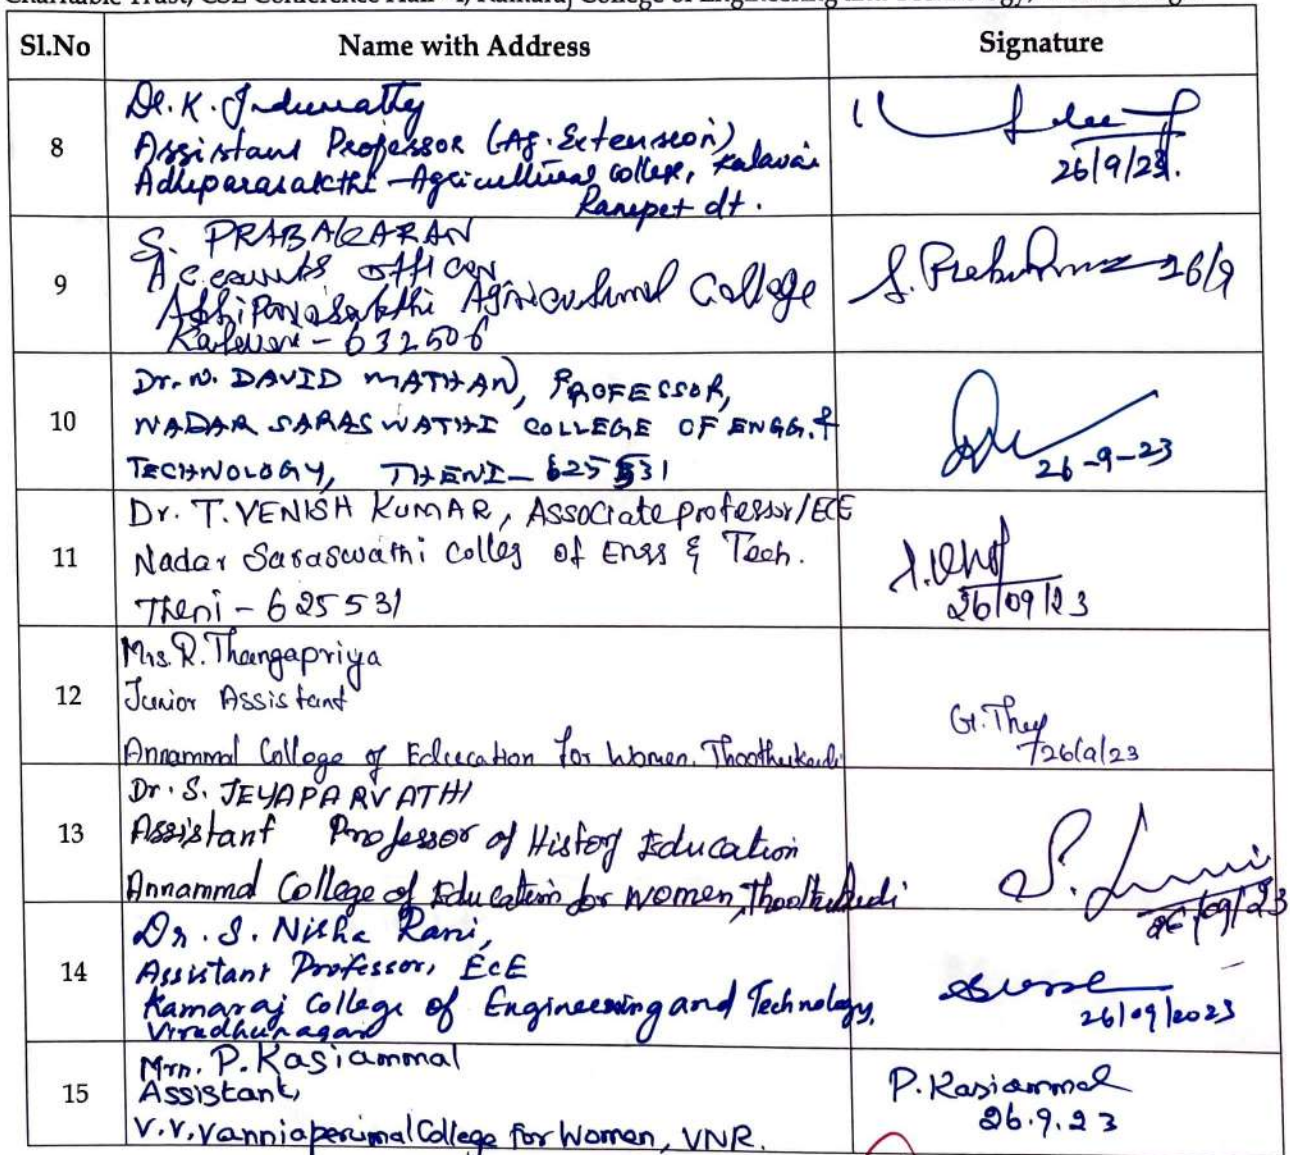 Charitable Trust, CSE Conference Hall - I, Kamaraj College of Engineering and Technology,
Sl.No Name with Address Signature
8
Dr. K. Indumathy
Assistant Professor (Ag. Extension)
Adhiparasakthi Agricultural College, Kalavai
Ranipet dt.
26/9/23.
9
S. PRABAKARAN
Accounts officer
Adhiparasakthi Agricultural College
Kalavai - 632506
26/9
10
Dr. N. DAVID MATHAN, PROFESSOR,
NADAR SARASWATHI COLLEGE OF ENGG. &
TECHNOLOGY, THENI - 625531
26-9-23
11
Dr. T. VENISH KUMAR, Associate professor/ECE
Nadar Saraswathi Colleg of Engg & Tech.
Theni - 625531
26/09/23
12
Mrs. R. Thangapriya
Junior Assistant
Annammal College of Education for Women, Thoothukudi
26/9/23
13
Dr. S. JEYAPARVATHI
Assistant Professor of History Education
Annammal College of Education for women, Thoothukudi
26/09/23
14
Dr. S. Nisha Rani,
Assistant Professor, ECE
Kamaraj College of Engineering and Technology,
Virudhunagar
26/09/2023
15
Mrs. P. Kasiammal
Assistant,
V.V. Vanniaperumal College for Women, VNR.
P. Kasiammal
26.9.23